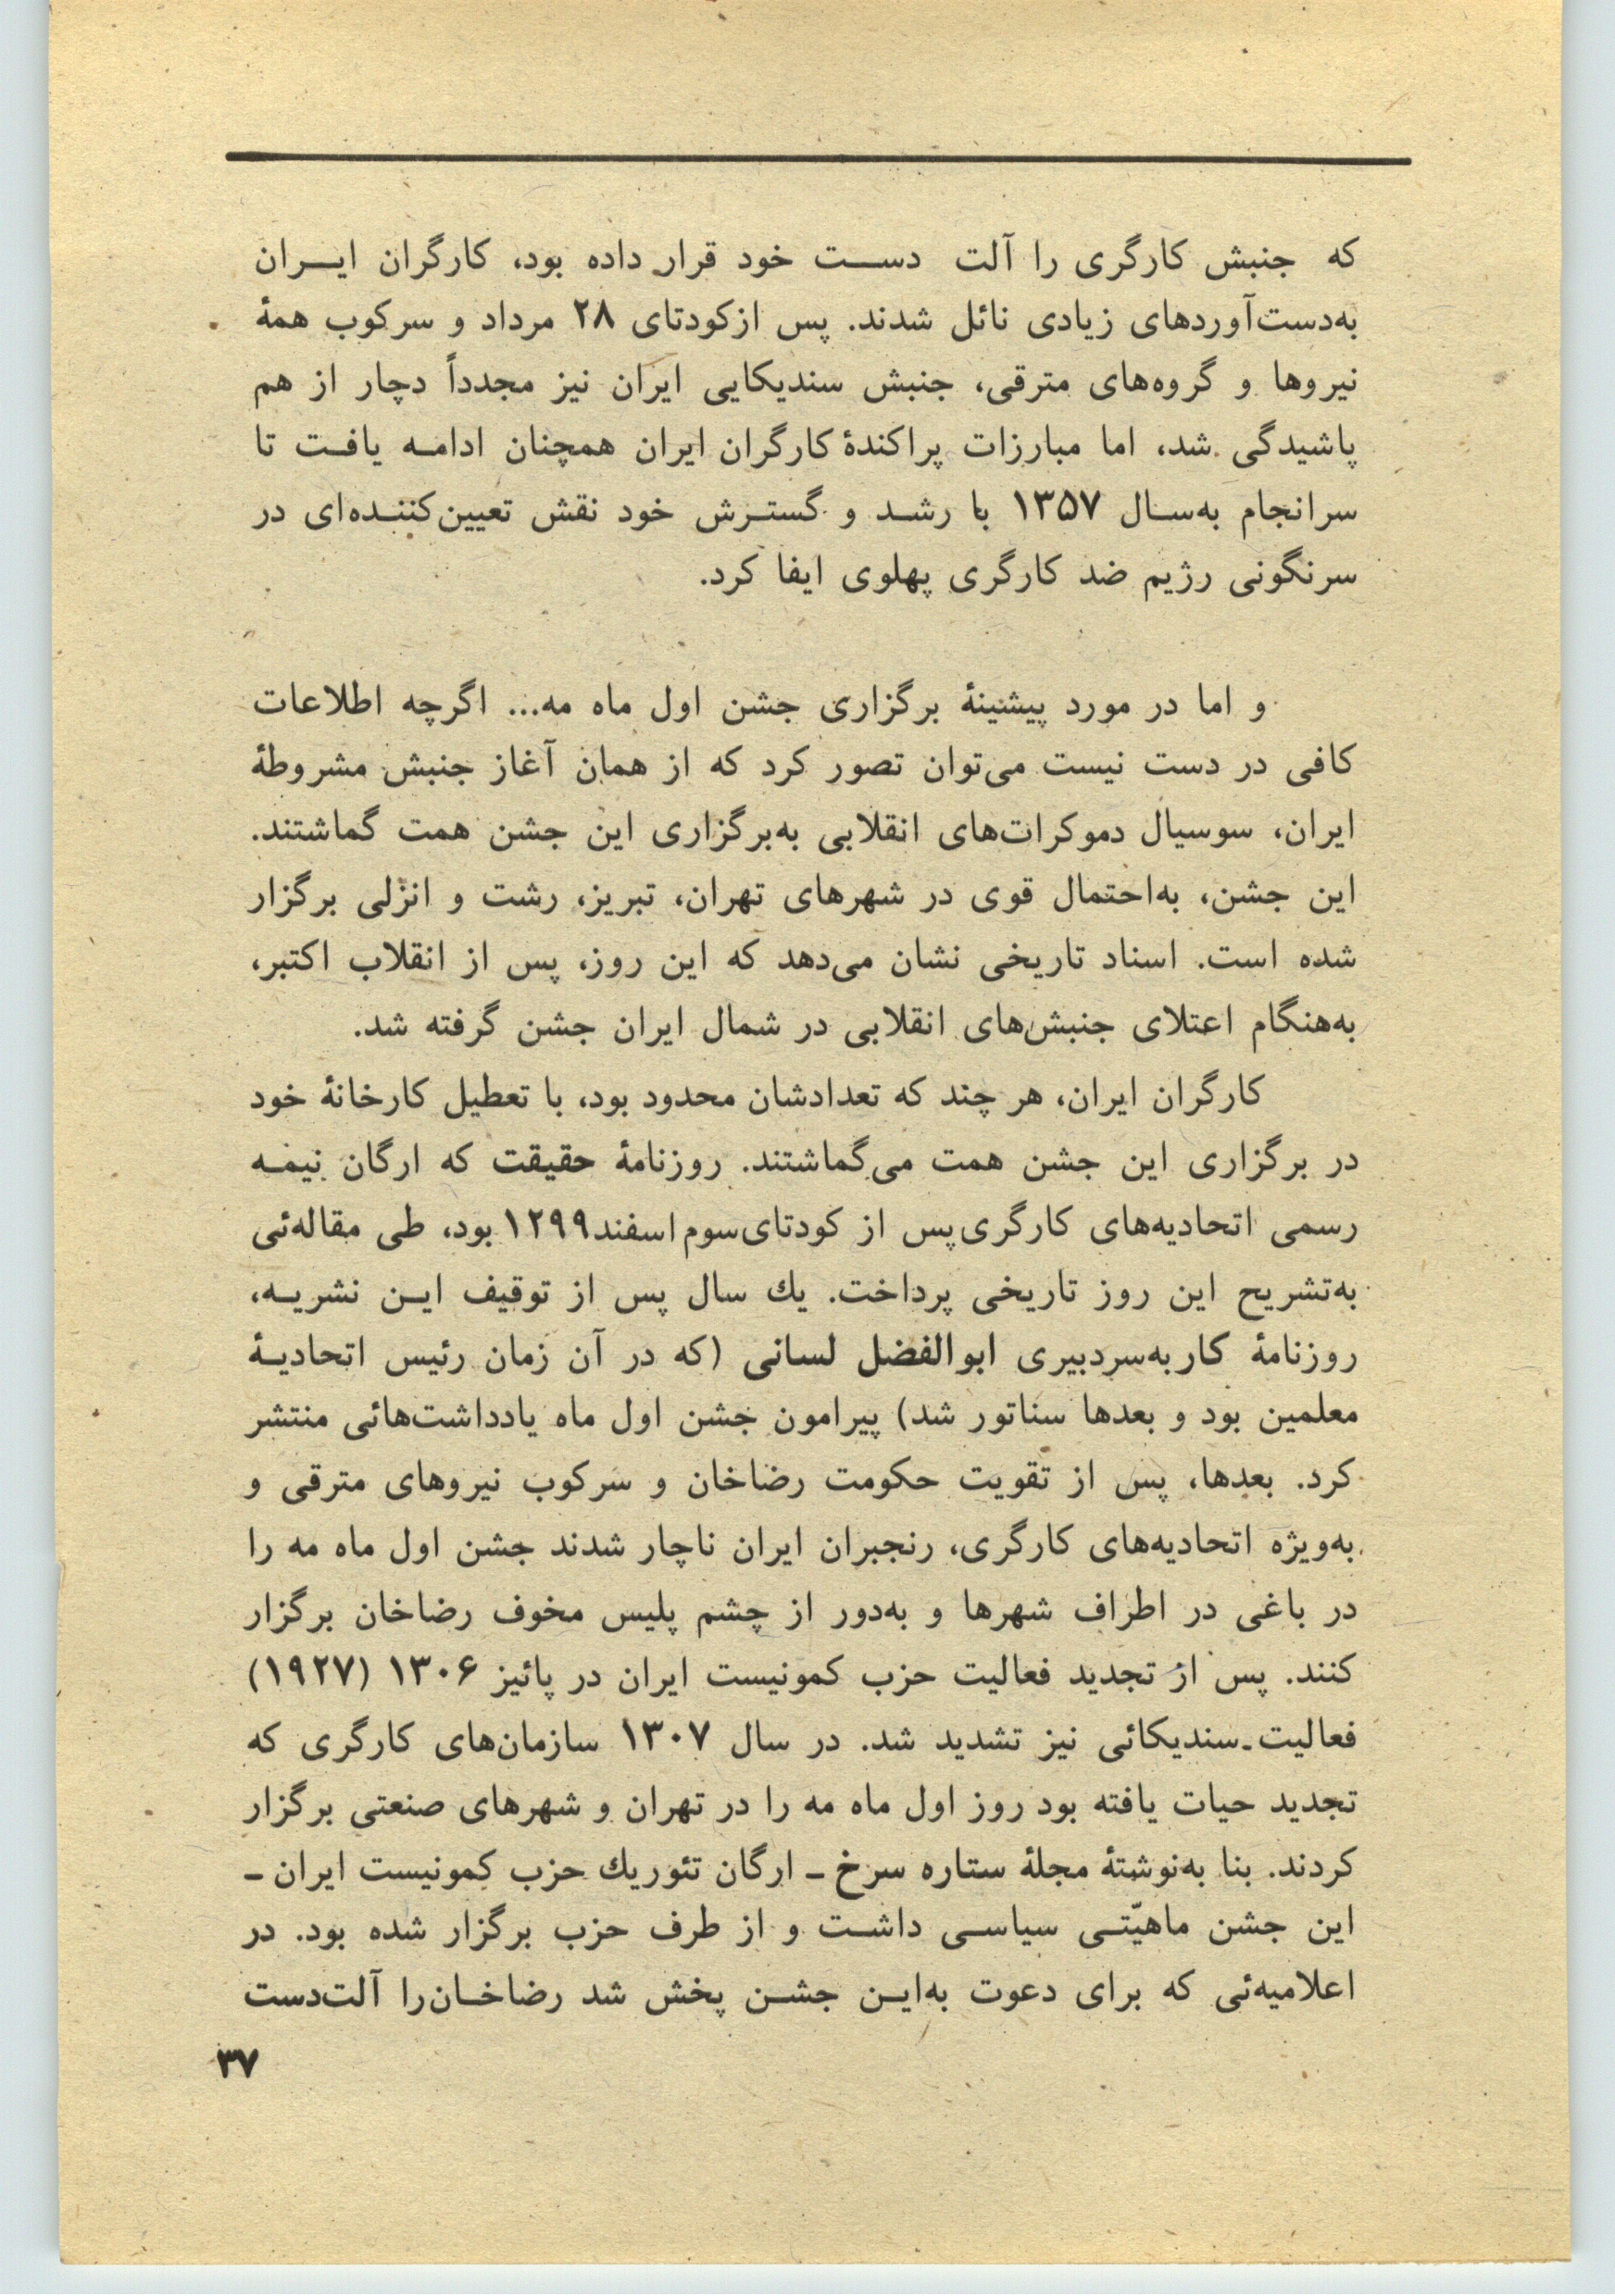 که جنبش کارگری را آلت دست خود قرار داده بود، کارگران ایران
به‌دست‌آوردهای زیادی نائل شدند. پس ازکودتای ۲۸ مرداد و سرکوب همهٔ
نیروها و گروه‌های مترقی، جنبش سندیکایی ایران نیز مجدداً دچار از هم
پاشیدگی شد، اما مبارزات پراکندهٔ کارگران ایران همچنان ادامه یافت تا
سرانجام به‌سال ۱۳۵۷ با رشد و گسترش خود نقش تعیین‌کننده‌ای در
سرنگونی رژیم ضد کارگری پهلوی ایفا کرد.
و اما در مورد پیشینهٔ برگزاری جشن اول ماه مه... اگرچه اطلاعات
کافی در دست نیست می‌توان تصور کرد که از همان آغاز جنبش مشروطهٔ
ایران، سوسیال دموکرات‌های انقلابی به‌برگزاری این جشن همت گماشتند.
این جشن، به‌احتمال قوی در شهرهای تهران، تبریز، رشت و انزلی برگزار
شده است. اسناد تاریخی نشان می‌دهد که این روز، پس از انقلاب اکتبر،
به‌هنگام اعتلای جنبش‌های انقلابی در شمال ایران جشن گرفته شد.
کارگران ایران، هر چند که تعدادشان محدود بود، با تعطیل کارخانهٔ خود
در برگزاری این جشن همت می‌گماشتند. روزنامهٔ حقیقت که ارگان نیمه
رسمی اتحادیه‌های کارگری پس از کودتای سوم اسفند ۱۲۹۹ بود، طی مقاله‌ئی
به‌تشریح این روز تاریخی پرداخت. یك سال پس از توقیف این نشریه،
روزنامهٔ کار به‌سردبیری ابوالفضل لسانی (که در آن زمان رئیس اتحادیهٔ
معلمین بود و بعدها سناتور شد) پیرامون جشن اول ماه یادداشت‌هائی منتشر
کرد. بعدها، پس از تقویت حکومت رضاخان و سرکوب نیروهای مترقی و
به‌ویژه اتحادیه‌های کارگری، رنجبران ایران ناچار شدند جشن اول ماه مه را
در باغی در اطراف شهرها و به‌دور از چشم پلیس مخوف رضاخان برگزار
کنند. پس از تجدید فعالیت حزب کمونیست ایران در پائیز ۱۳۰۶ (۱۹۲۷)
فعالیت-سندیکائی نیز تشدید شد. در سال ۱۳۰۷ سازمان‌های کارگری که
تجدید حیات یافته بود روز اول ماه مه را در تهران و شهرهای صنعتی برگزار
کردند. بنا به‌نوشتهٔ مجلهٔ ستاره سرخ ـ ارگان تئوریك حزب کمونیست ایران ـ
این جشن ماهیّتی سیاسی داشت و از طرف حزب برگزار شده بود. در
اعلامیه‌ئی که برای دعوت به‌این جشن پخش شد رضاخان‌را آلت‌دست
۳۷